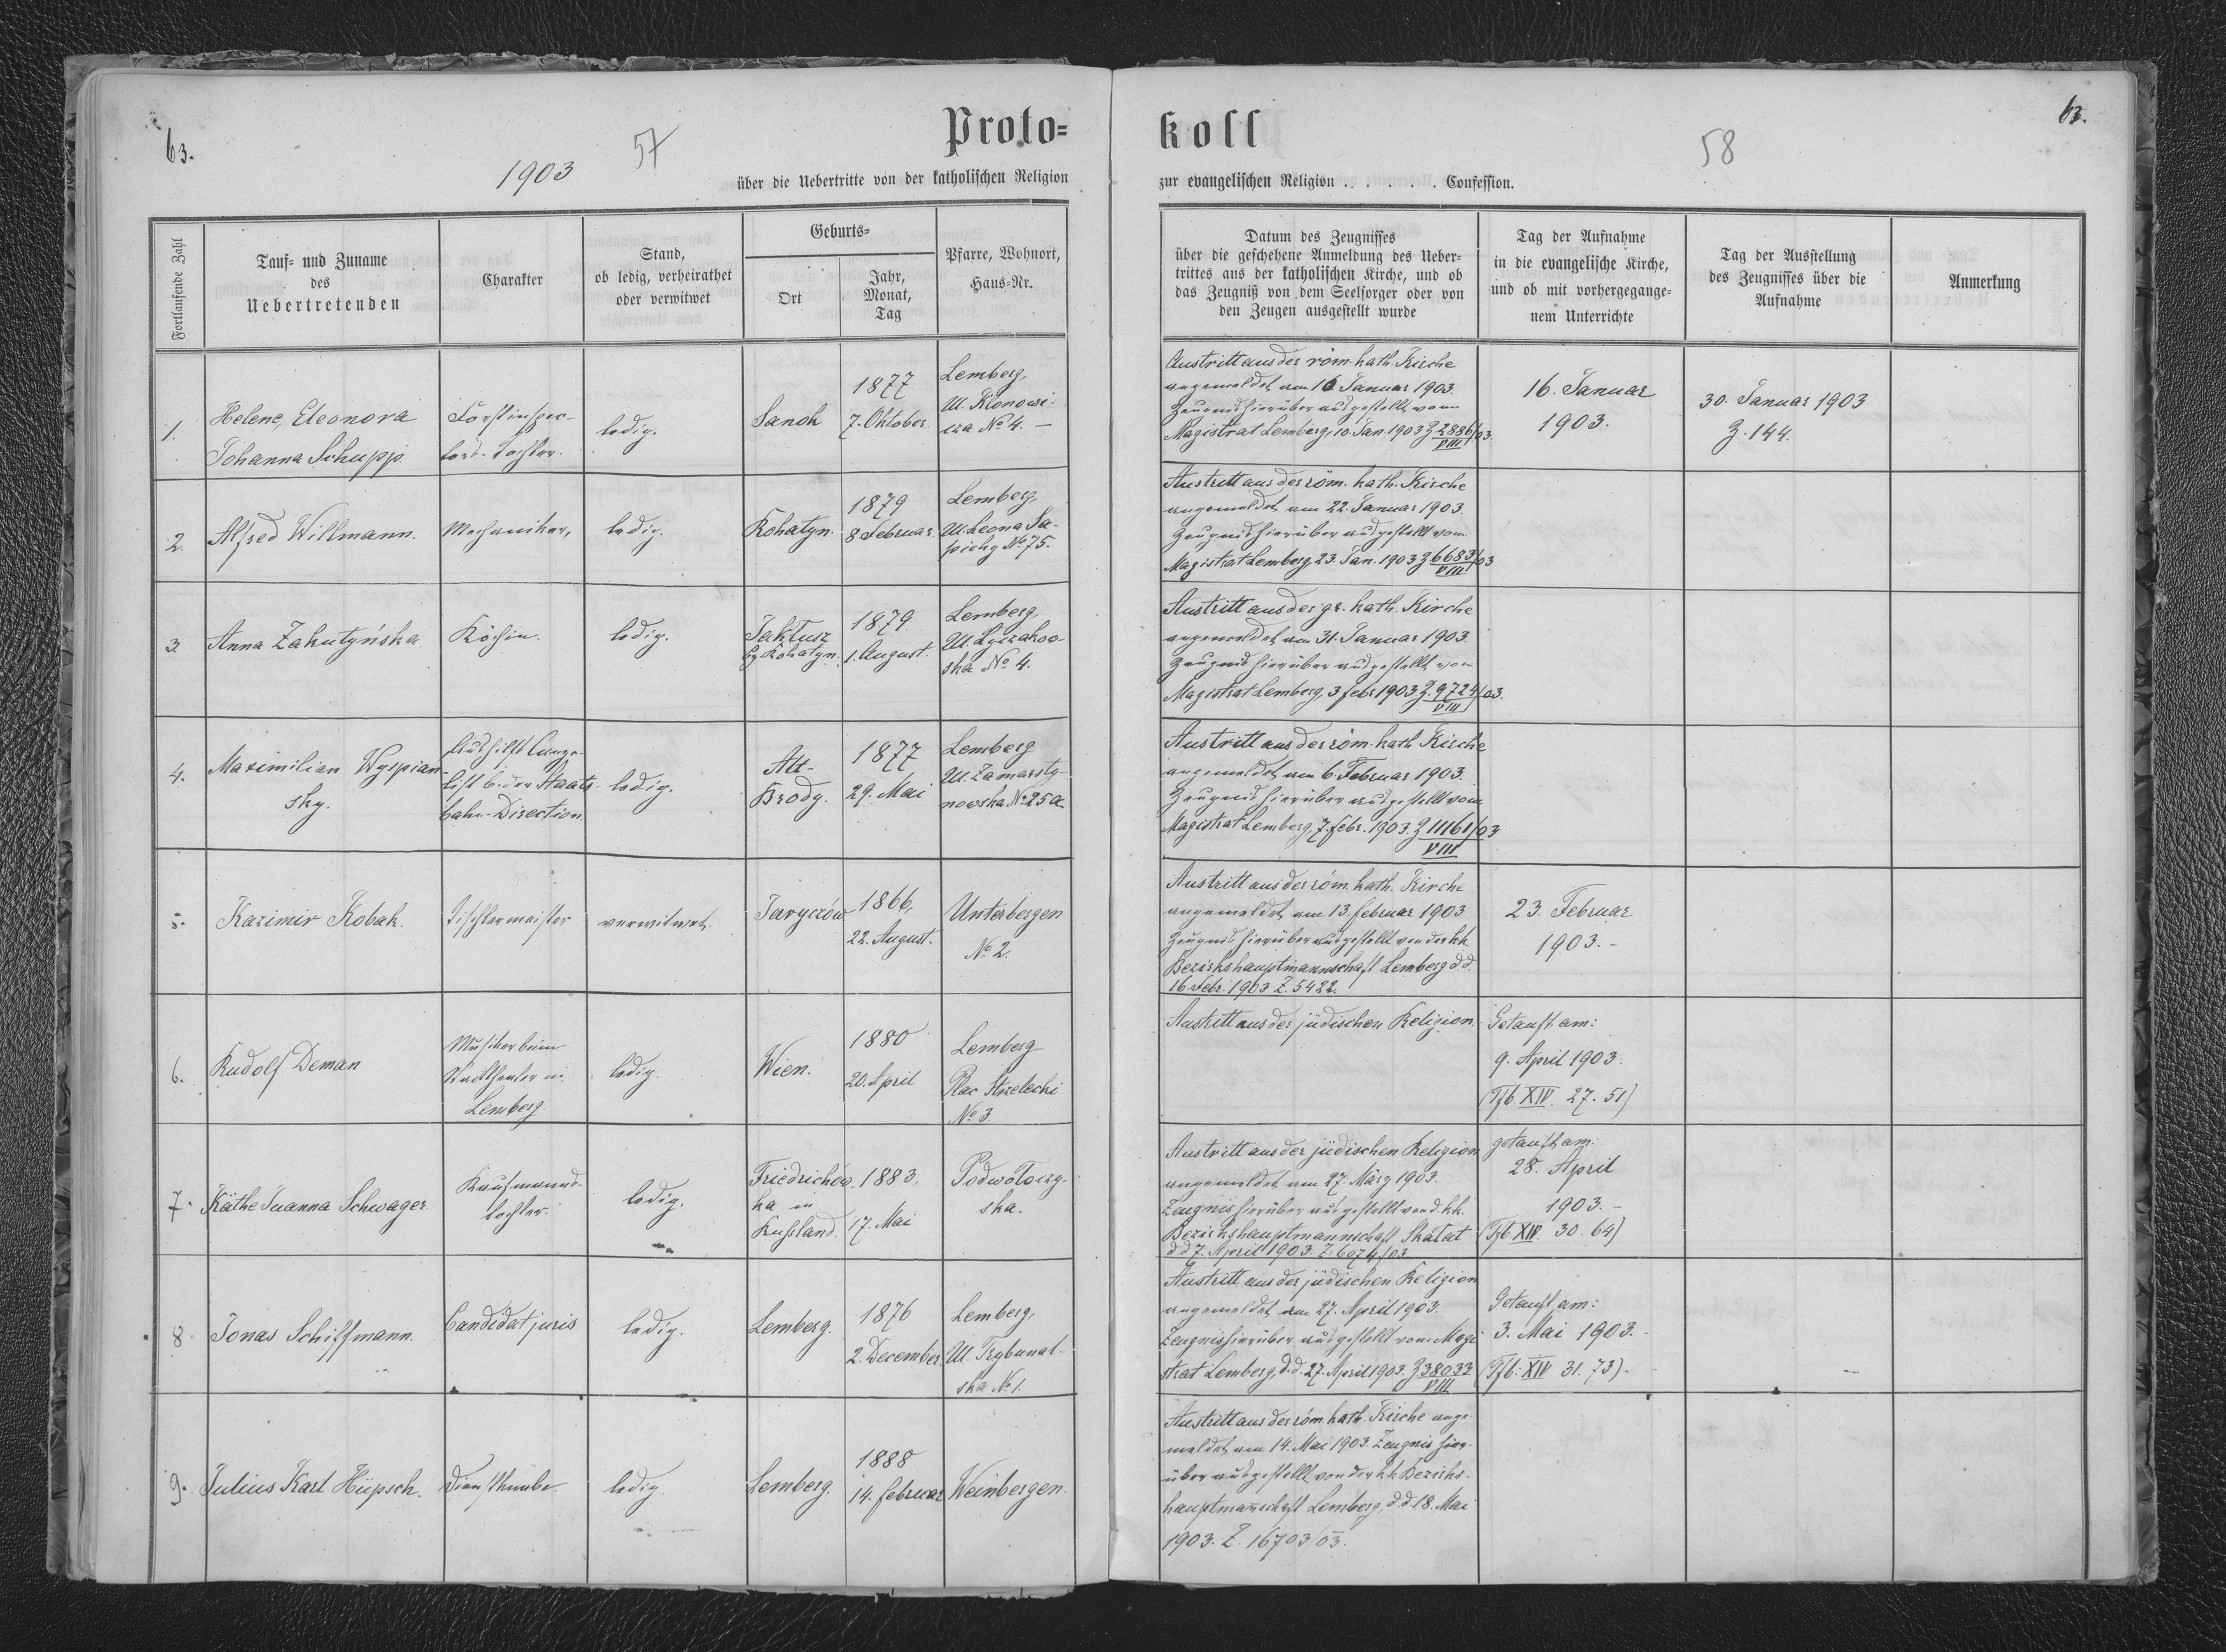 63.
1903
57
Proto=
über die Uebertritte von der katholischen Religion
Fortlaufende Zahl
Tauf= und Zuname
des
Uebertretenden
Charakter
Stand,
ob ledig, verheirathet
oder verwitwet
Geburts=
Ort
Jahr,
Monat,
Tag
Pfarre, Wohnort,
Haus=Nr.
1.
Helene, Eleonora
Johanna Schupp.
Forstinspec-
tors-Tochter.
ledig.
Sanok
1877
7. Oktober.
Lemberg,
Ul. Klonowi-
cza No 4. —
2.
Alfred Willmann.
Mechaniker,
ledig.
Rohatyn.
1879
8 Februar.
Lemberg,
Ul. Leona Sa-
piehy No 75.
3.
Anna Zakutyńska
Köchin.
ledig.
Jaktusz
bz Rohatyn.
1879
1. August.
Lemberg,
Ul. Lyczakow-
ska No 4.
4.
Maximilian Wyspian-
sky.
Aushilfs Canze-
list b. der Staats-
bahn-Direction.
ledig.
Alt-
Brody.
1877
29. Mai
Lemberg
Ul. Zamarsty-
nowska No 25a.
5.
Kazimir Kobak.
Tischlermeister
verwitwet.
Jaryczów
1866,
22. August.
Unterbergen
No 2.
6.
Rudolf Deman
Musiker beim
Stadttheater in
Lemberg.
ledig.
Wien.
1880
20. April
Lemberg
Plac Strzelecki
No 3.
7.
Käthe Susanna Schwager.
Kaufmanns-
tochter.
ledig.
Friedrichów-
ka in
Russland.
1883,
17. Mai
Podwołoczy-
ska.
8
Jonas Schiffmann.
Candidat juris
ledig.
Lemberg.
1876
2. December.
Lemberg,
Ul. Trybunal-
ska No 1.
9.
Julius Karl Hüpsch.
Dienstknabe
ledig.
Lemberg.
1888
14. Februar
Weinbergen.
63.
58
koll
zur evangelischen Religion . . . . . . Confession.
Datum des Zeugnisses
über die geschehene Anmeldung des Ueber=
trittes aus der katholischen Kirche, und ob
das Zeugniß von dem Seelsorger oder von
den Zeugen ausgestellt wurde
Tag der Aufnahme
in die evangelische Kirche,
und ob mit vorhergegange=
nem Unterrichte
Tag der Ausstellung
des Zeugnisses über die
Aufnahme
Anmerkung
Austritt aus der röm. kath. Kirche
angemeldet am 10 Januar 1903.
Zeugnis hierüber ausgestellt vom
Magistrat Lemberg, 10. Jan 1903 Z 2886/03.
VIII
16. Januar
1903.
30. Januar 1903
Z. 144.
Austritt aus der röm. kath. Kirche
angemeldet am 22. Januar 1903.
Zeugnis hierüber ausgestellt vom
Magistrat Lemberg, 23. Jan. 1903 Z 6683/03
VIII
Austritt aus der gr. kath. Kirche
angemeldet am 31. Januar 1903.
Zeugnis hierüber ausgestellt vom
Magistrat Lemberg, 3 febr 1903. Z. 9724/03.
VIII
Austritt aus der röm. kath Kirche
angemeldet am 6. Februar 1903.
Zeugnis hierüber ausgestellt vom
Magistrat Lemberg, 7. febr. 1903. Z 11161/03
VIII
Austritt aus der röm. kath. Kirche
angemeldet am 13. februar 1903
Zeugnis hierüber ausgestellt von der k.k.
Bezirkshauptmannschaft Lemberg d.d.
16. Febr. 1903 Z. 5422.
23. Februar
1903. -
Austritt aus der jüdischen Religion.
Getauft am:
9. April 1903.
(Tfb. XIV. 27. 51)
Austritt aus der jüdischen Religion
angemeldet am 27. März 1903.
Zeugnis hierüber ausgestellt von d. k.k.
Bezirkshauptmannschaft Skałat
d d 7. April 1903. Z. 6074/03
getauft am:
28. April
1903. -
(Tfb XIV. 30. 64)
Austritt aus der jüdischen Religion
angemeldet am 27. April 1903.
Zeugnis hierüber ausgestellt vom Magi-
strat Lemberg, d. d. 27. April 1903. Z 38033
VIII
Getauft am:
3. Mai 1903. -
(Tfb. XIV 31. 73). -
Austritt aus der röm. kath. Kirche ange-
meldet am 14. Mai 1903. Zeugnis hier-
über ausgestellt von der k.k. Bezirks-
hauptmannschaft Lemberg, d. d 18. Mai
1903. Z. 16703/03.